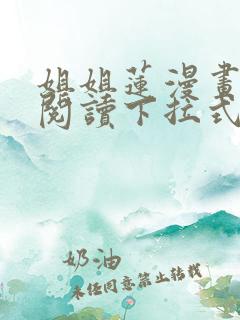 姐姐蓮漫畫
閱讀下拉式
奶油
未经同意禁止转载